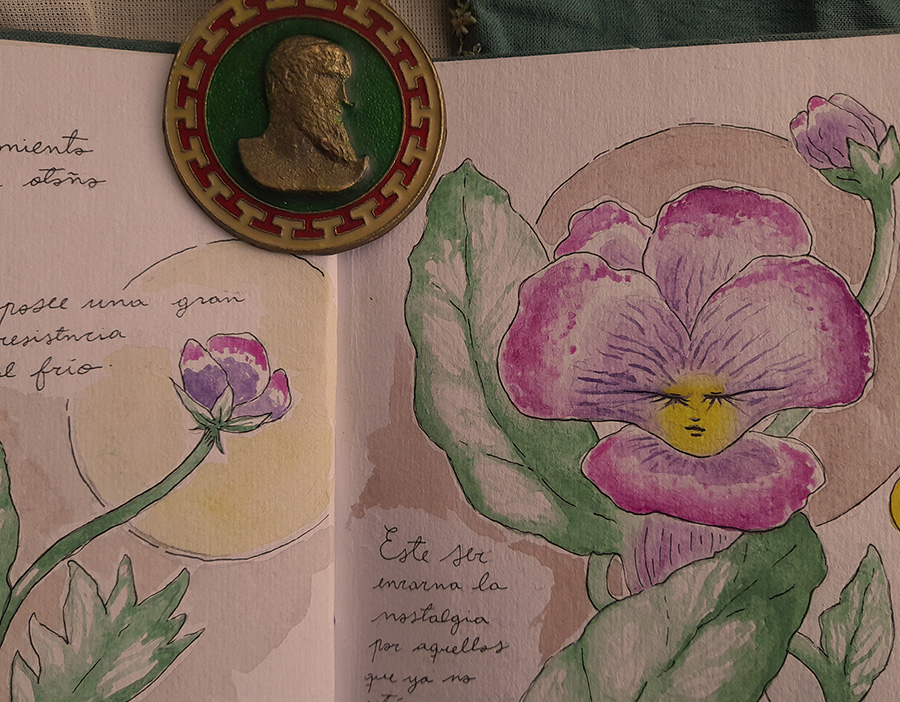 miento
otoño
posee una gran
resistencia
al frío.
Este ser
encarna la
nostalgia
por aquellos
que ya no